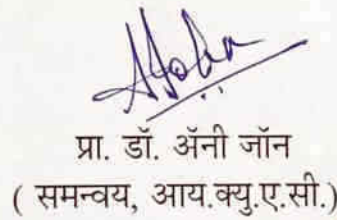 प्रा. डॉ. ॲनी जॉन
( समन्वय, आय.क्यु.ए.सी.)